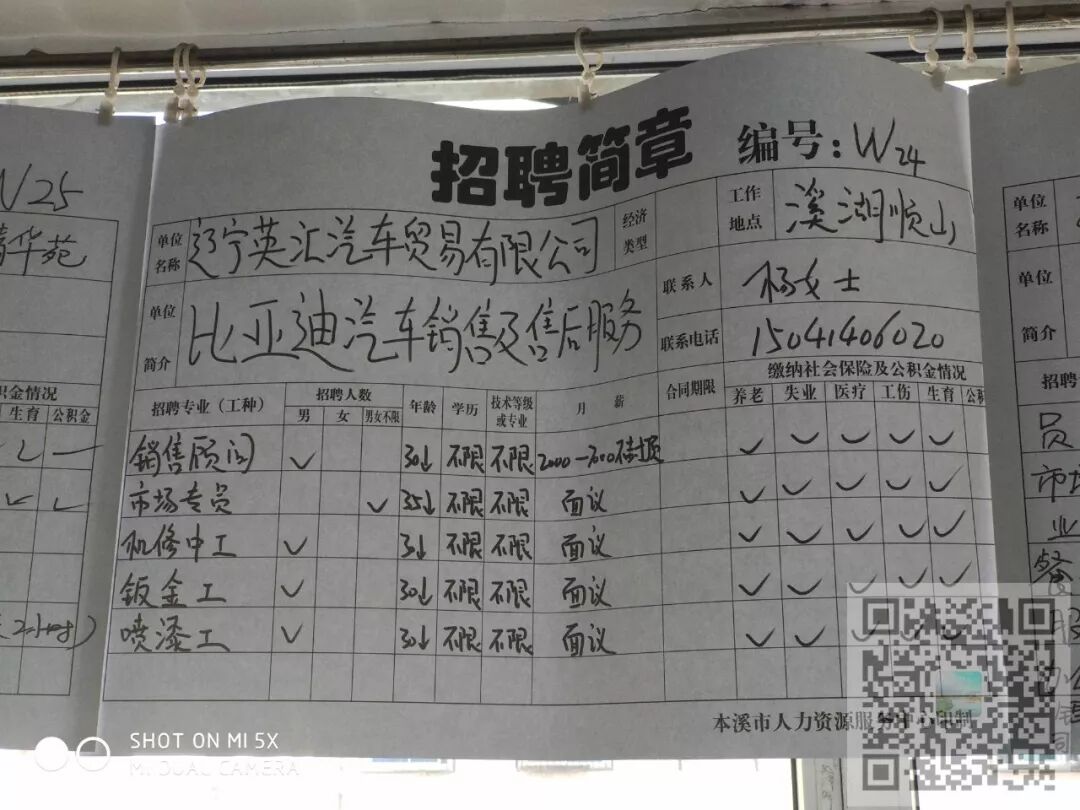 招聘简章
编号：W24
单位名称 辽宁英汇汽车贸易有限公司 经济类型 工作地点 溪湖顺山
单位简介 比亚迪汽车销售及售后服务 联系人 杨女士
联系电话 15041406020
招聘专业（工种） 招聘人数 年龄 学历 技术等级或专业 月薪 合同期限 缴纳社会保险及公积金情况
男 女 男女不限 养老 失业 医疗 工伤 生育 公积
销售顾问 ✓ 30↓ 不限 不限 2000 ✓ ✓ ✓ ✓ ✓
市场专员 ✓ 35↓ 不限 不限 面议 ✓ ✓ ✓ ✓ ✓
机修中工 ✓ 不限 不限 面议 ✓ ✓ ✓ ✓ ✓
钣金工 ✓ 30↓ 不限 不限 面议 ✓ ✓ ✓ ✓ ✓
喷漆工 ✓ 30↓ 不限 不限 面议 ✓ ✓ ✓ ✓ ✓
本溪市人力资源服务中心印制
W25
华苑
积金情况
生育 公积金
单位名称
单位简介
招聘
员
市场
业
餐
服
SHOT ON MI 5X
MI DUAL CAMERA